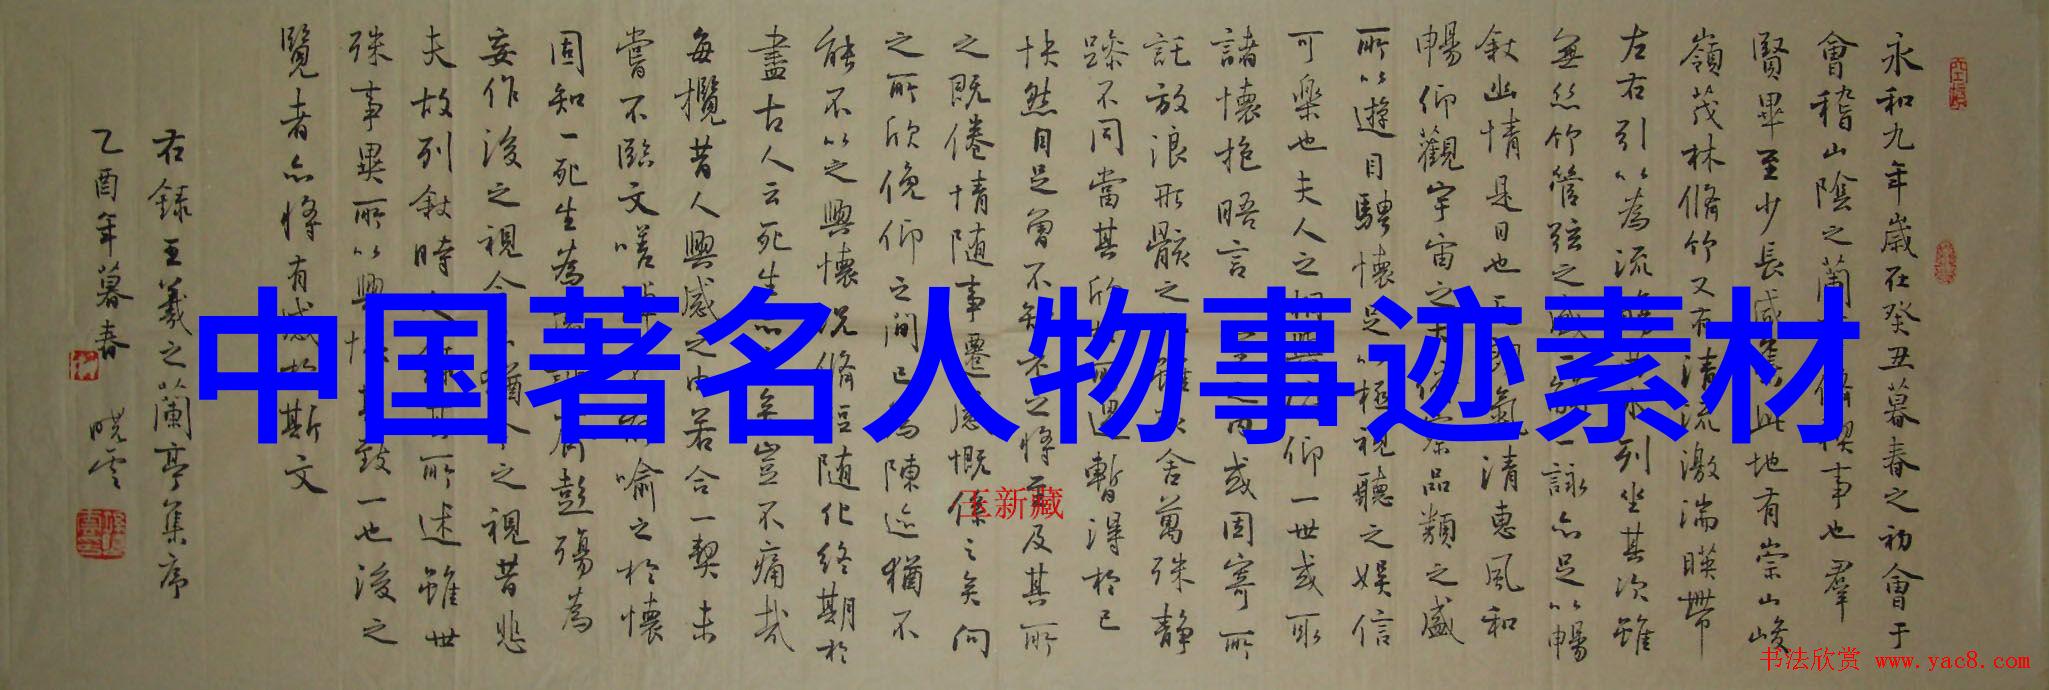 中国著名人物事迹素材
永和九年歲在癸丑暮春之初會于
會稽山陰之蘭脩禊事也羣
賢畢至少長咸集此地有崇山峻
嶺茂林脩竹又有清流激湍暎帶
左右引以為流列坐其次雖
無絲竹管弦之盛一詠亦足以暢
敘幽情是日也氣清惠風和
暢仰觀宇宙之品類之盛
所以遊目騁懷足以極視聽之娛信
可樂也夫人之相與仰一世或取
諸懷抱晤言之內或因寄所
託放浪形骸之雖舍萬殊静
躁不同當其欣遇暫得於己
快然自足曾不知之將至及其所
之既倦情随事遷感慨係之矣向
之所欣俛仰之間已為陳迹猶不
能不以之興懷况脩短随化終期於
盡古人云死生亦矣豈不痛哉
每攬昔人興感之由若合一契未
嘗不臨文嗟喻之於懷
固知一死生為齊彭殤為
妄作後之視今猶之視昔悲
夫故列敘時所述雖世
殊事異所以興致一也後之
覽者亦將有感於斯文
右錄王羲之蘭亭集序
乙酉年暮春 曉雲
王新藏
书法欣赏 www.yac8.com